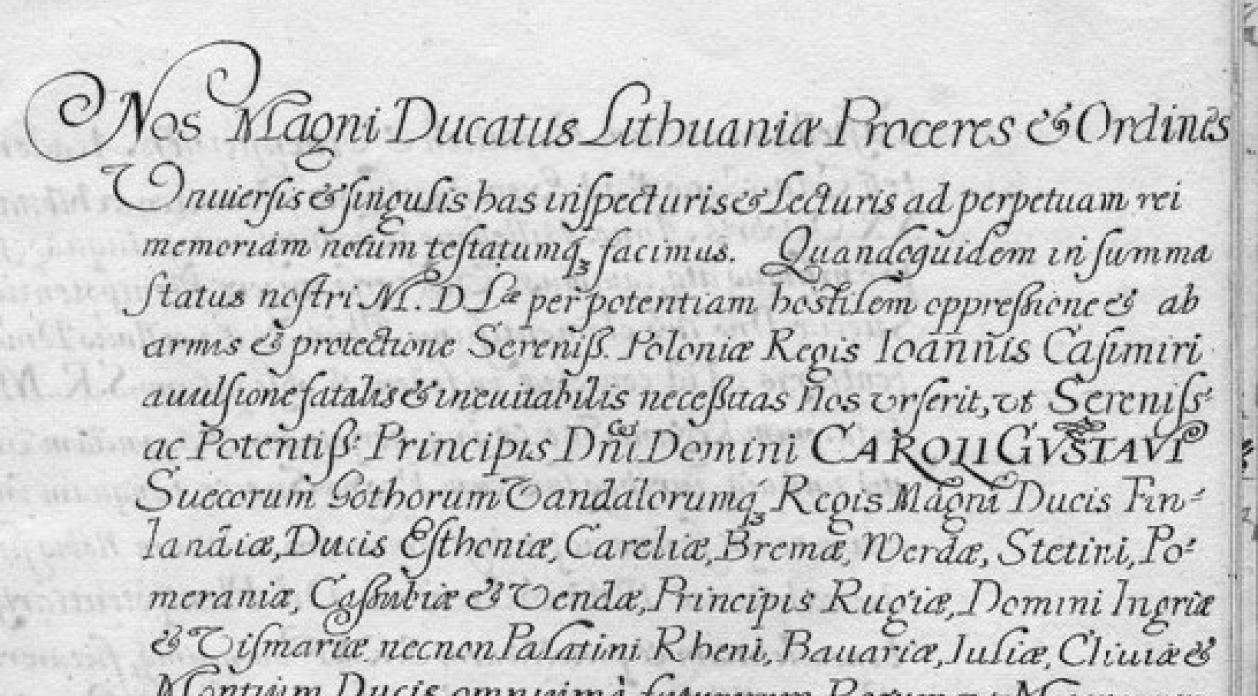 Nos Magni Ducatus Lithuaniæ Proceres & Ordines
Vniuersis & singulis has inspecturis & Lecturis ad perpetuam rei
memoriam notum testatumq₃ facimus. Quandoquidem in summa
status nostri M. D. Læ per potentiam hostilem oppreßione & ab
armis & protectione Sereniß. Poloniæ Regis Ioannis Casimiri
auulsione fatalis & ineuitabilis neceßitas Nos vrserit, vt Sereniss-
ac Potentiß: Principis Dñi Domini CAROLI GVSTAVI
Suecorum Gothorum Vandalorumq₃ Regis Magni Ducis Fin-
landiæ, Ducis Esthoniæ, Careliæ, Bremæ, Werdæ, Stetini, Po-
meraniæ, Caßubiæ & Vendæ, Principis Rugiæ, Domini Ingriæ
& Vismariæ necnon Palatini Rheni, Bauariæ, Juliæ, Cliuiæ &
Montium Ducis